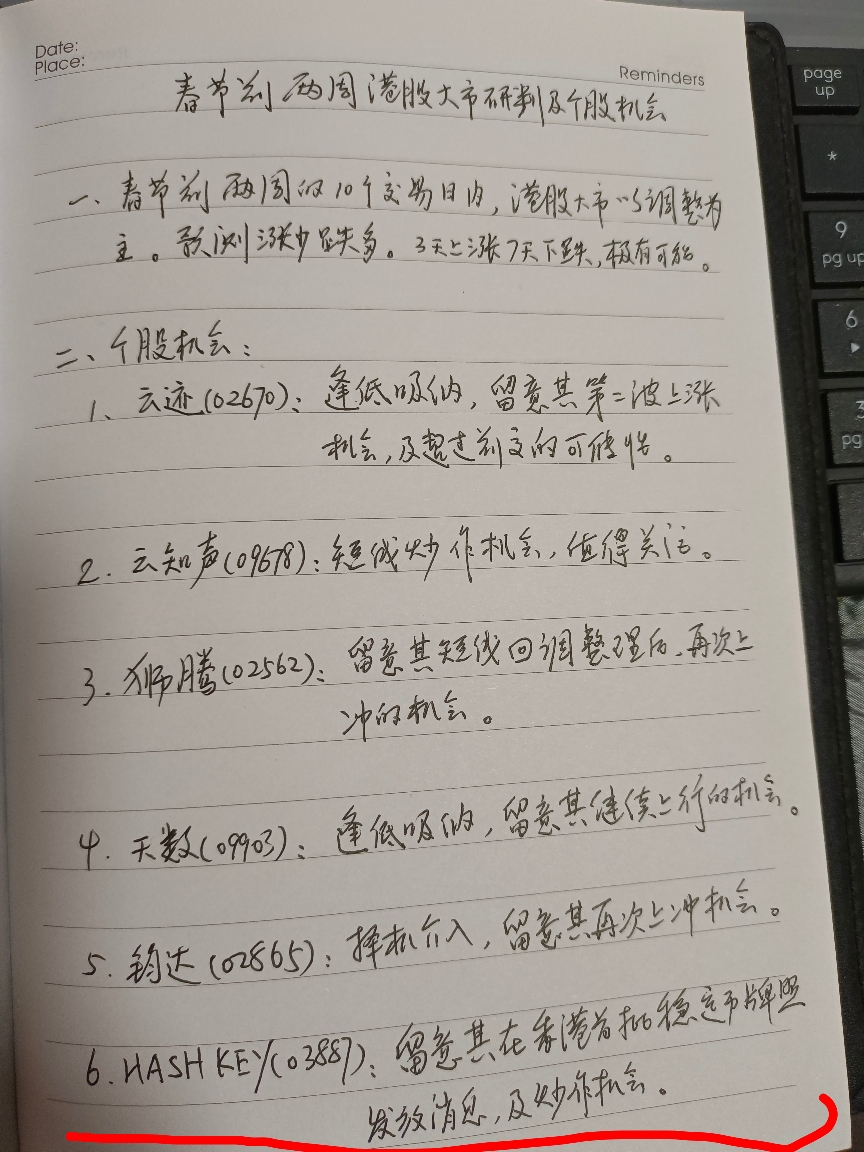 Date:
Place:
Reminders
春节前两周港股大市研判及个股机会
一、春节前两周的10个交易日内，港股大市以调整为
主。预测涨少跌多。3天上涨7天下跌，极有可能。
二、个股机会：
1、云迹(02670)：逢低吸纳，留意其第二波上涨
机会，及超过前高的可能性。
2．云知声(09678)：短线炒作机会，值得关注。
3．狮腾(02562)：留意其短线回调整理后，再次上
冲的机会。
4．天数(09903)：逢低吸纳，留意其继续上行的机会。
5．钧达(02865)：择机介入，留意其再次上冲机会。
6．HASH KEY(03887)：留意其在香港首批稳定币牌照
发放消息，及炒作机会。
page
up
*
9
pg up
6
3
pg